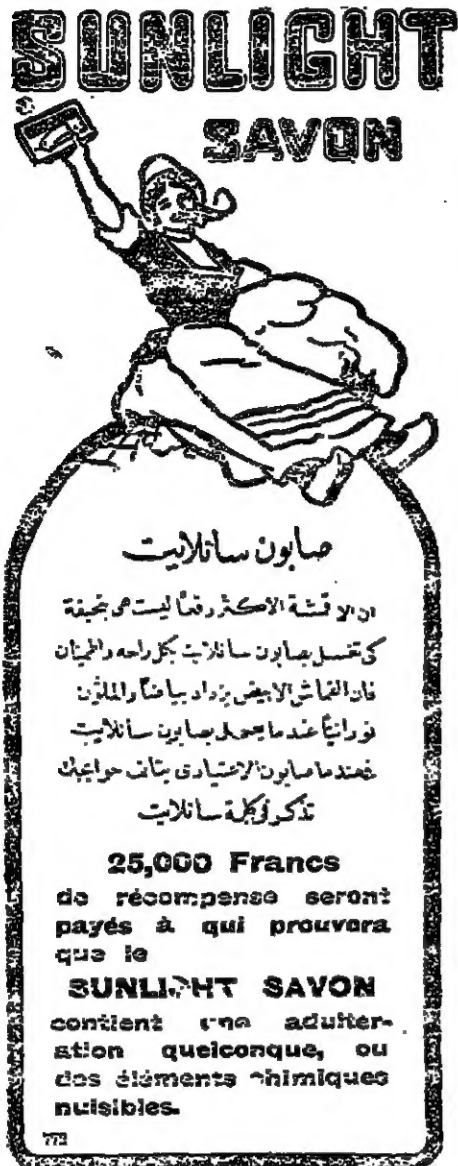 SUNLIGHT
SAVON
صابون سانلايت
ان الاقشة الاكثر رفعاً ليست هي بخيفة
كي تغسل بصابون سانلايت بكل راحه واطمئنان
فان القماش الابيض يزداد بياضاً والملوّن
نورانيّاً عندما يعمل بصابون سانلايت
فعندما صابون الاعتيادي يتلف حوائجك
تذكر في كلمة سانلايت
25,000 Francs
de récompense seront
payés à qui prouvera
que le
SUNLIGHT SAVON
contient une adulter-
ation quelconque, ou
des éléments chimiques
nuisibles.
772